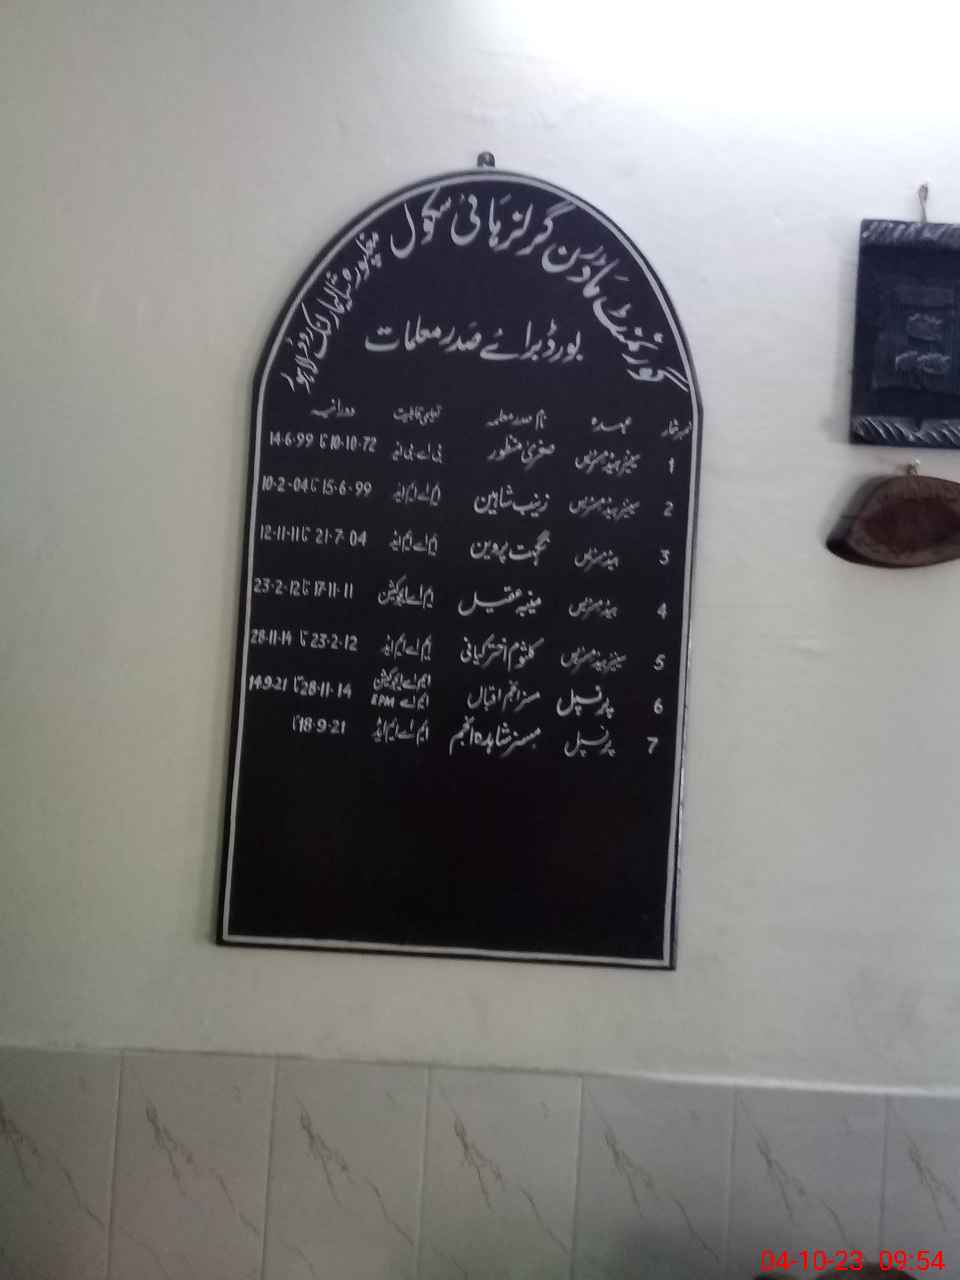 گورنمنٹ ماڈرن گرلز ہائی سکول مغلپورہ شالیمار لنک روڈ لاہور
بورڈ برائے صدر معلمات
نمبر شمار عہدہ نام صدر معلمہ تعلیمی قابلیت دورانیہ
1 سینئر ہیڈ مسٹریس صغریٰ منظور بی اے بی ایڈ 10-10-72 تا 14-6-99
2 سینئر ہیڈ مسٹریس زینب شاہین ایم اے ایم ایڈ 15-6-99 تا 10-2-04
3 ہیڈ مسٹریس نگہت پروین ایم اے ایم ایڈ 21-7-04 تا 12-11-11
4 ہیڈ مسٹریس عقیل ایم اے ایجوکیشن 17-11-11 تا 23-2-12
5 سینئر ہیڈ مسٹریس کلثوم اختر کیانی ایم اے ایم ایڈ 23-2-12 تا 28-11-14
6 پرنسپل مسز انجم اقبال ایم اے ایجوکیشن ایم اے EPM 28-11-14 تا 14-9-21
7 پرنسپل مسز شاہدہ انجم ایم اے ایم ایڈ 18-9-21 تا
04-10-23 09:54